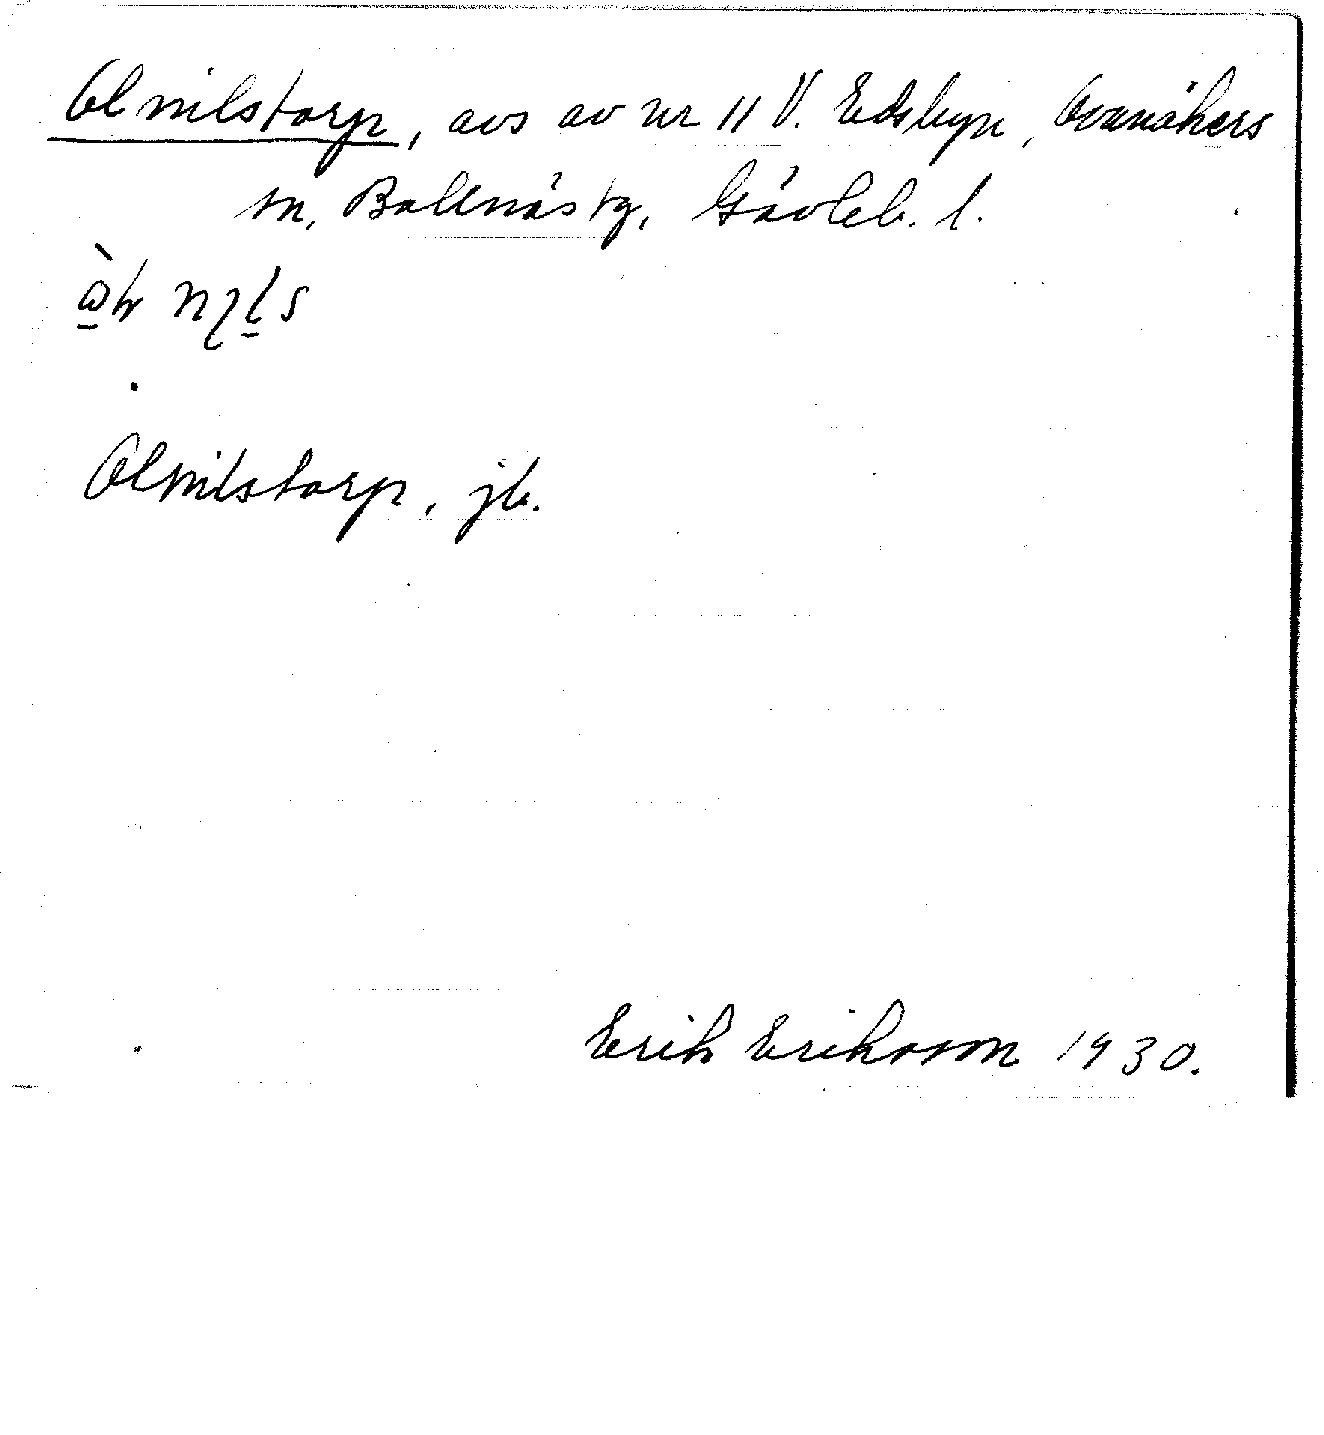 Olnilstorp, avs av nr 11 V. Edsbyn, Ovanåkers
sn, Bollnäs tg, Gävleb. l.
Olnilstorp, jb.
Erik Eriksson 1930.